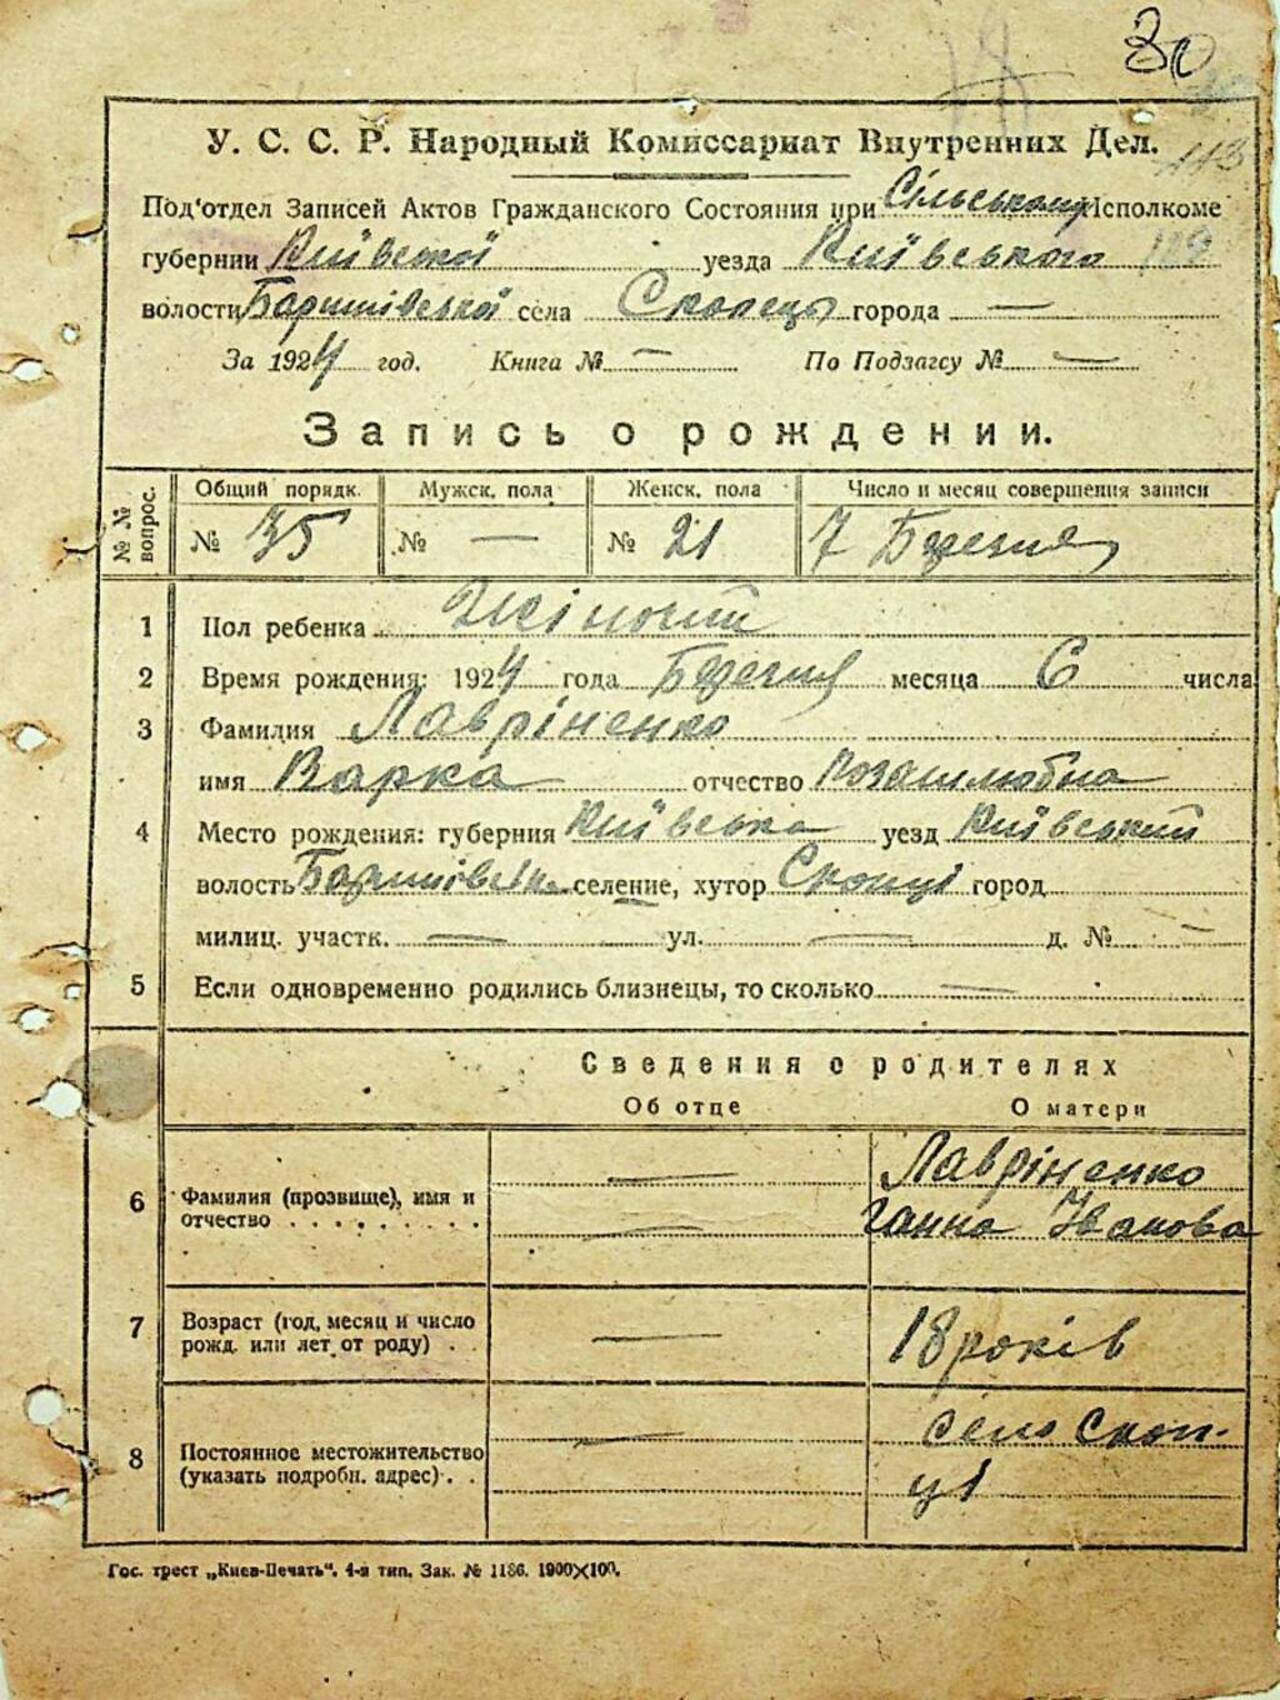 30
113
У. С. С. Р. Народный Комиссариат Внутренних Дел.
Под'отдел Записей Актов Гражданского Состояния при Сільському Исполкоме
губернии Київської уезда Київського 109
волости Баришівської села Скопець города —
За 1924 год. Книга № — По Подзагсу № —
Запись о рождении.
№ № вопрос. Общий порядк. Мужск. пола Женск. пола Число и месяц совершения записи
№ 35 № — № 21 7 Березня
1 Пол ребенка Жіночий
2 Время рождения: 1924 года Березня месяца 6 числа
3 Фамилия Лавріненко
имя Варка отчество позашлюбна
4 Место рождения: губерния Київська уезд Київський
волость Баришівська селение, хутор Скопці город
милиц. участк. — ул. — д. № —
5 Если одновременно родились близнецы, то сколько —
Сведения о родителях
Об отце О матери
6 Фамилия (прозвище), имя и отчество — — Лавріненко
Ганна Іванова
7 Возраст (год, месяц и число рожд. или лет от роду) — 18 років
8 Постоянное местожительство (указать подробн. адрес) — село Скоп-
ці
Гос. трест „Киев-Печать“. 4-я тип. Зак. № 1186. 1900×100.